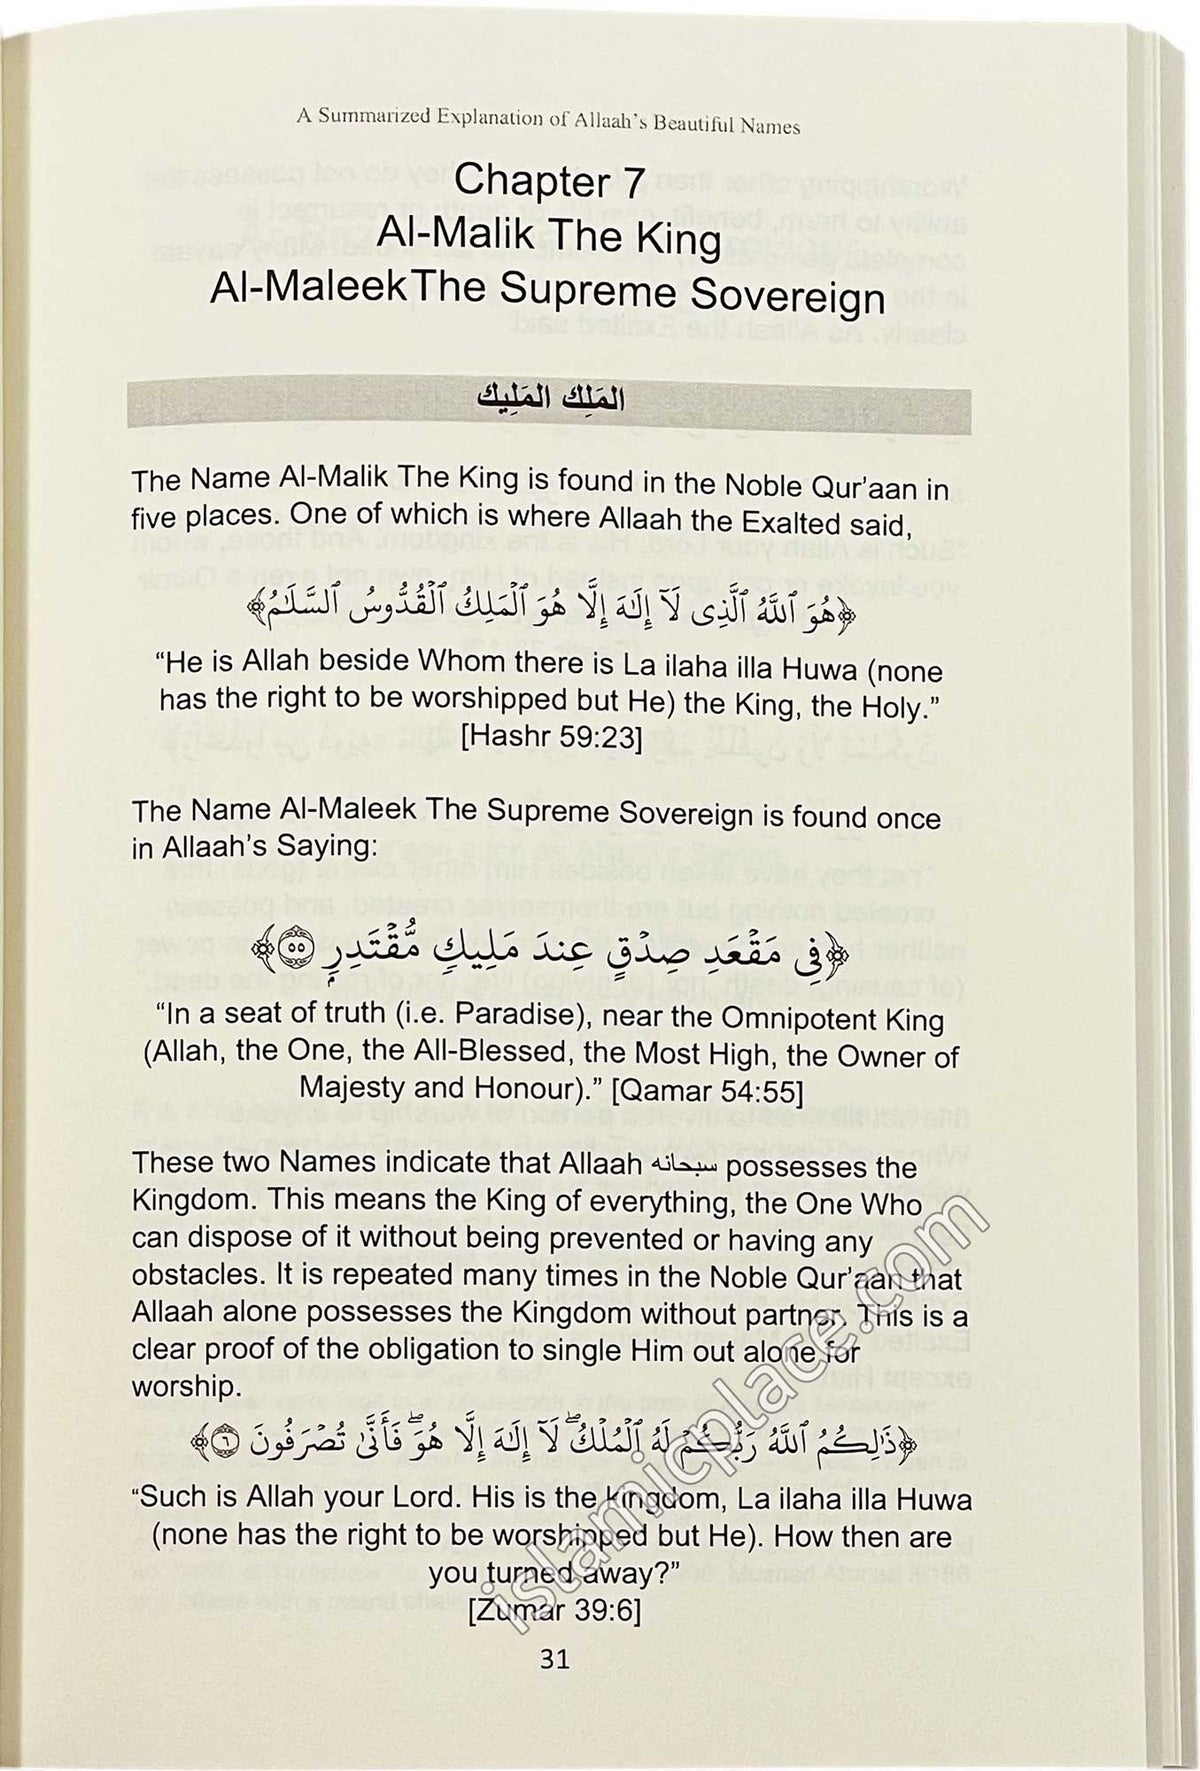 A Summarized Explanation of Allaah's Beautiful Names
Chapter 7
Al-Malik The King
Al-MaleekThe Supreme Sovereign
المَلِك المَلِيك
The Name Al-Malik The King is found in the Noble Qur'aan in
five places. One of which is where Allaah the Exalted said,
﴿هُوَ ٱللَّهُ ٱلَّذِى لَآ إِلَـٰهَ إِلَّا هُوَ ٱلْمَلِكُ ٱلْقُدُّوسُ ٱلسَّلَـٰمُ﴾
"He is Allah beside Whom there is La ilaha illa Huwa (none
has the right to be worshipped but He) the King, the Holy."
[Hashr 59:23]
The Name Al-Maleek The Supreme Sovereign is found once
in Allaah's Saying:
﴿فِى مَقْعَدِ صِدْقٍ عِندَ مَلِيكٍ مُّقْتَدِرٍۭ ٥٥﴾
"In a seat of truth (i.e. Paradise), near the Omnipotent King
(Allah, the One, the All-Blessed, the Most High, the Owner of
Majesty and Honour)." [Qamar 54:55]
These two Names indicate that Allaah سبحانه possesses the
Kingdom. This means the King of everything, the One Who
can dispose of it without being prevented or having any
obstacles. It is repeated many times in the Noble Qur'aan that
Allaah alone possesses the Kingdom without partner. This is a
clear proof of the obligation to single Him out alone for
worship.
﴿ذَٰلِكُمُ ٱللَّهُ رَبُّكُمْ لَهُ ٱلْمُلْكُ ۖ لَآ إِلَـٰهَ إِلَّا هُوَ ۖ فَأَنَّىٰ تُصْرَفُونَ ٦﴾
"Such is Allah your Lord. His is the kingdom, La ilaha illa Huwa
(none has the right to be worshipped but He). How then are
you turned away?"
[Zumar 39:6]
31
islamicplace.com